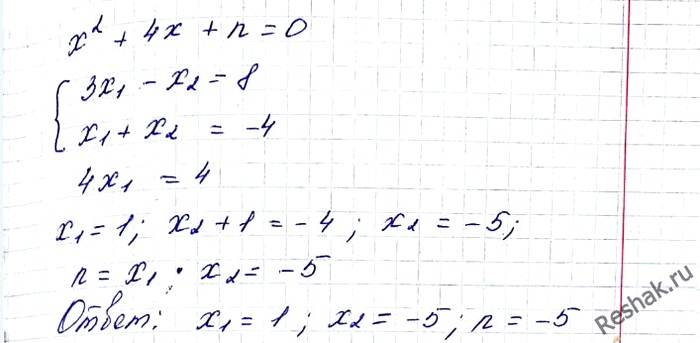 x² + 4x + n = 0
{ 3x₁ - x₂ = 8
x₁ + x₂ = -4
4x₁ = 4
x₁ = 1; x₂ + 1 = -4; x₂ = -5;
n = x₁ · x₂ = -5
Ответ: x₁ = 1; x₂ = -5; n = -5
Reshak.ru